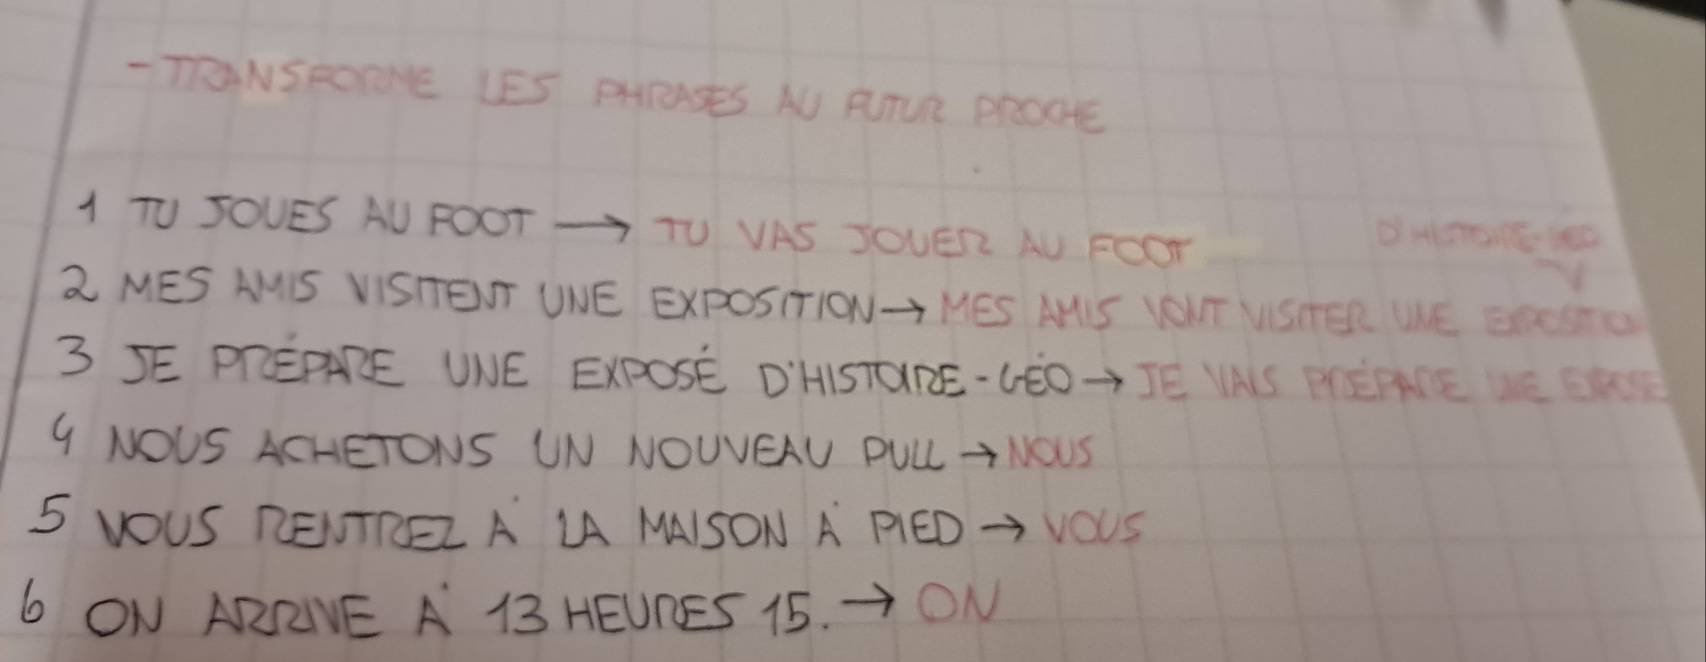 - TRANSFORME LES PHRASES AU FUTUR PROCHE
1 TU JOUES AU FOOT → TU VAS JOUER AU FOOT
D'HISTOIRE-GÉO
2 MES AMIS VISITENT UNE EXPOSITION → MES AMIS VONT VISITER UNE EXPOSITION
3 JE PRÉPARE UNE EXPOSÉ D'HISTOIRE-GÉO → JE VAIS PRÉPARE UNE EXPOSÉ
4 NOUS ACHETONS UN NOUVEAU PULL → NOUS
5 VOUS RENTREZ À LA MAISON À PIED → VOUS
6 ON ARRIVE À 13 HEURES 15. → ON